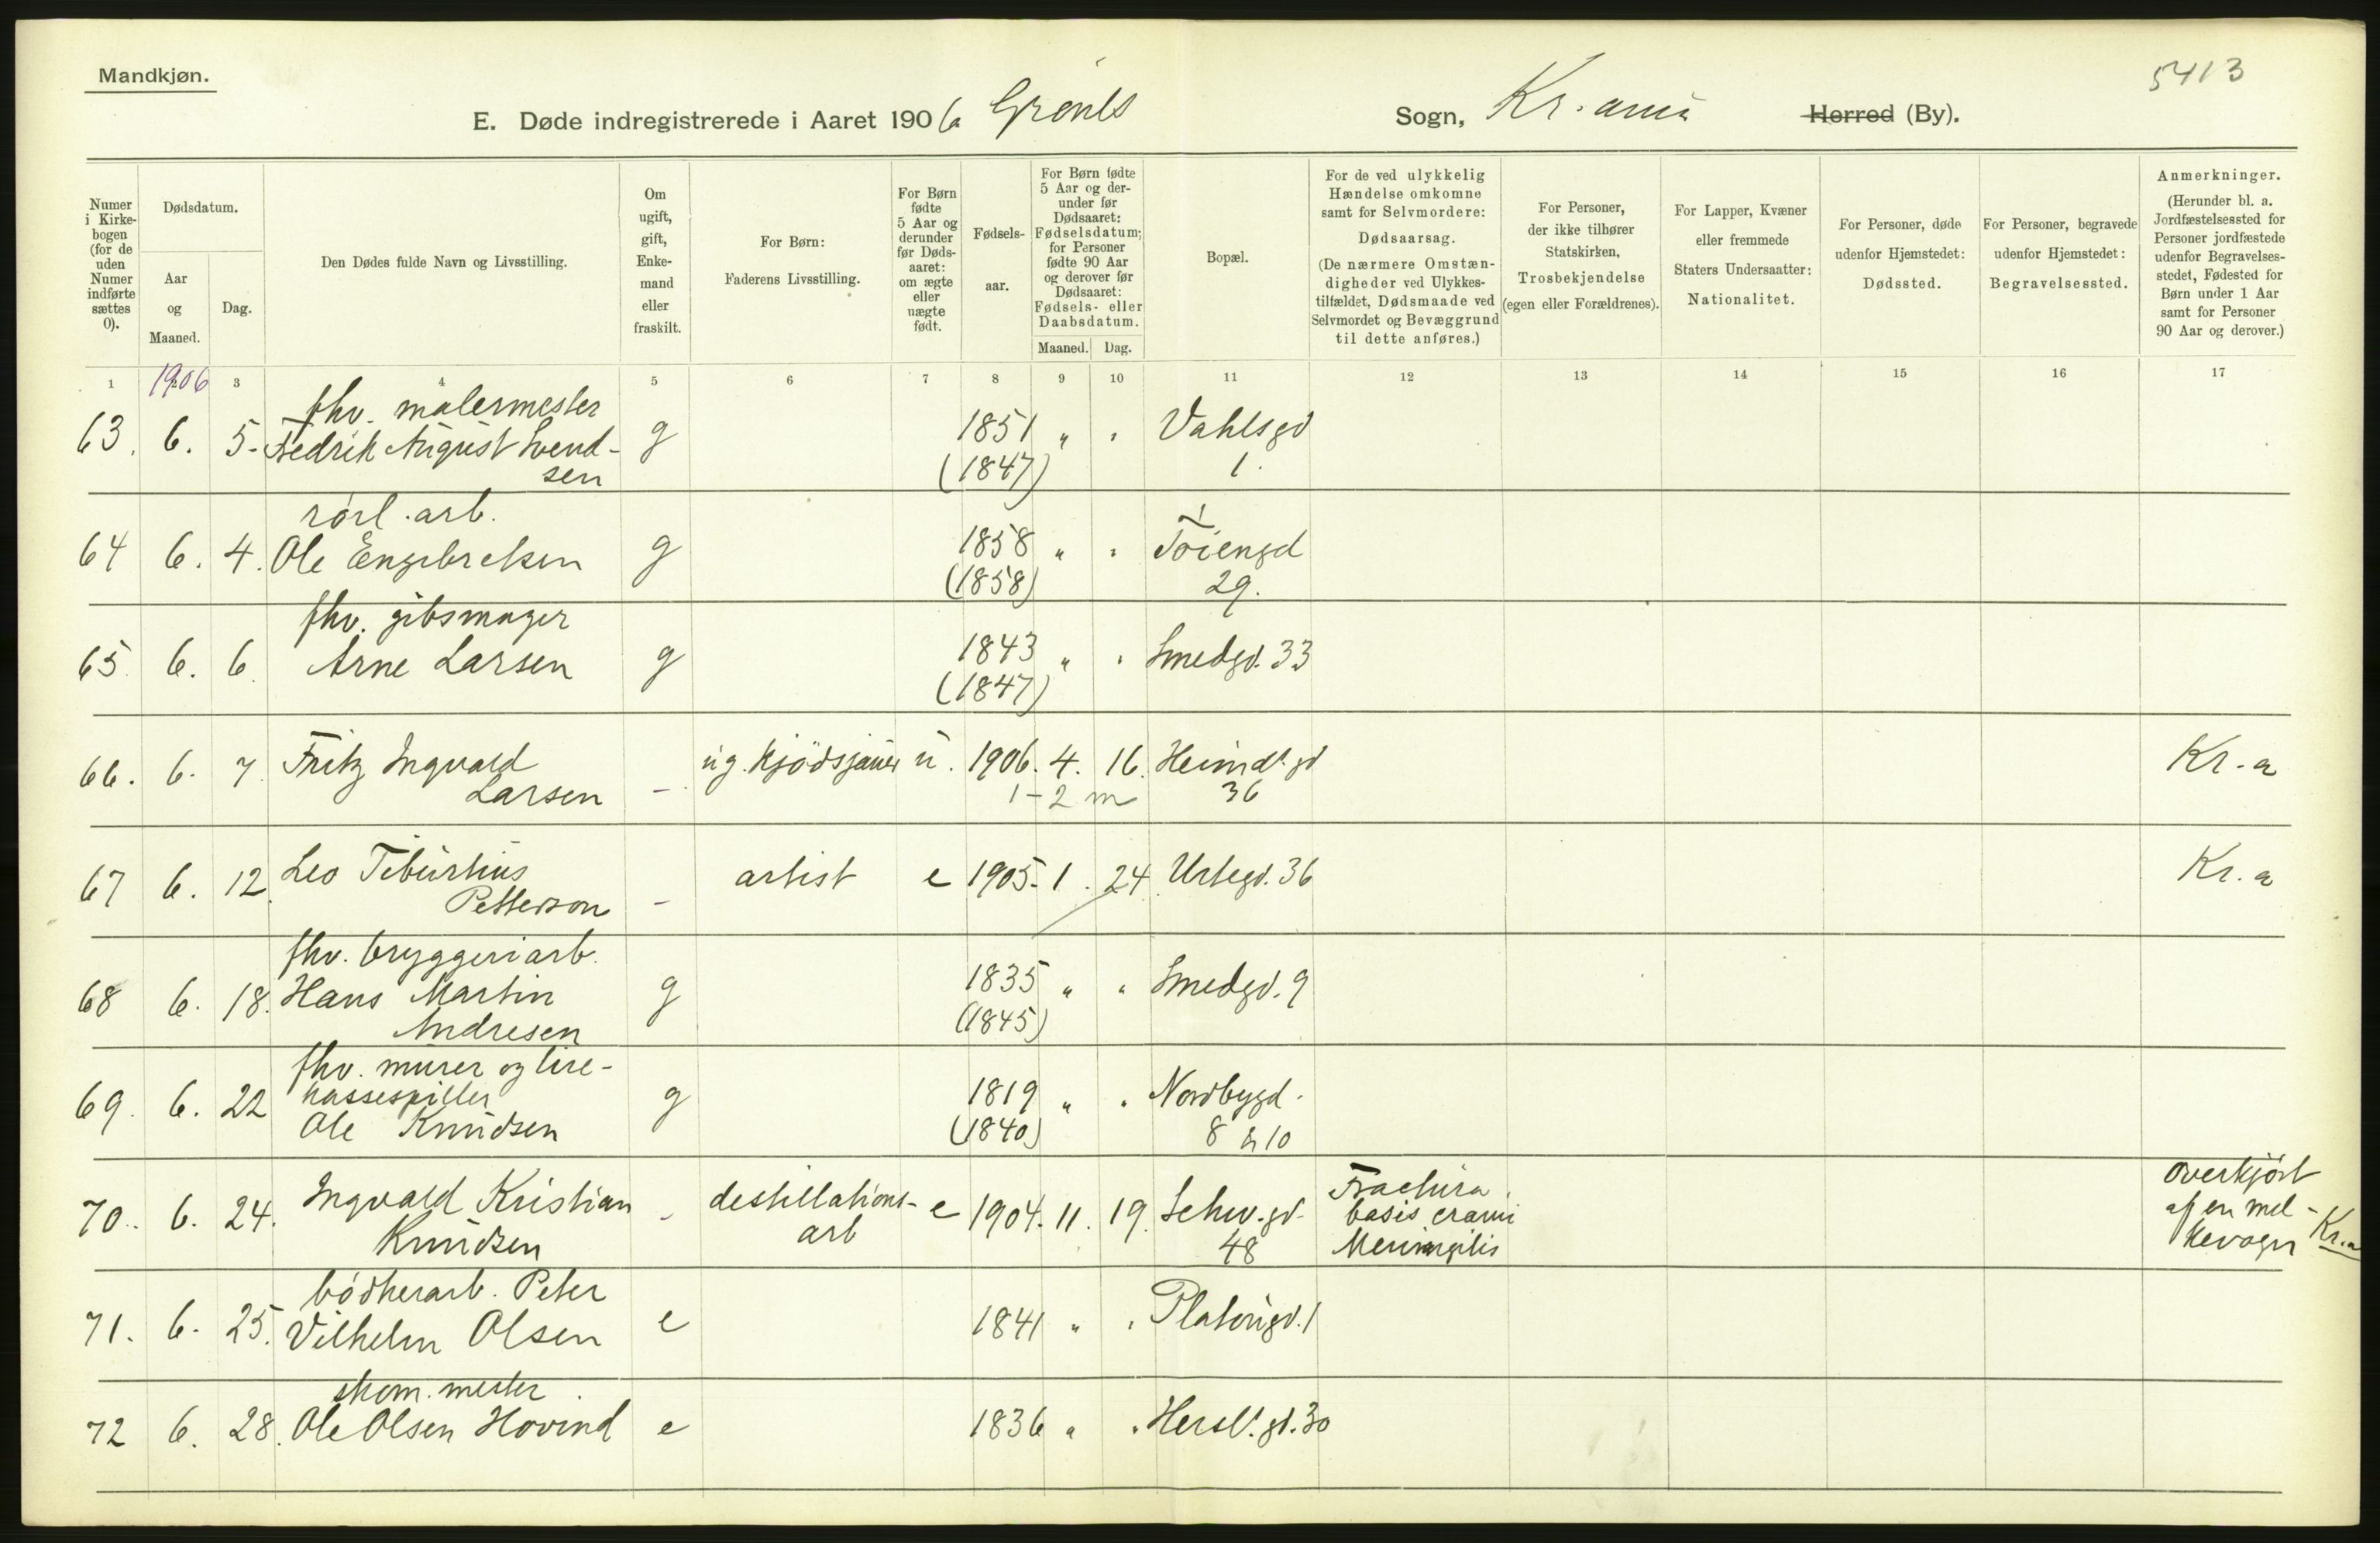 Mandkjøn.
5413
E. Døde indregistrerede i Aaret 1906 Grønls Sogn, Kr.ania Herred (By).
Numer i Kirkebogen (for de uden Numer indførte sættes 0).
Dødsdatum.
Aar og Maaned.
Dag.
Den Dødes fulde Navn og Livsstilling.
Om ugift, gift, Enkemand eller fraskilt.
For Børn: Faderens Livsstilling.
For Børn fødte 5 Aar og derunder før Dødsaaret: om ægte eller uægte født.
Fødselsaar.
For Børn fødte 5 Aar og derunder før Dødsaaret: Fødselsdatum; for Personer fødte 90 Aar og derover før Dødsaaret: Fødsels- eller Daabsdatum.
Maaned. Dag.
Bopæl.
For de ved ulykkelig Hændelse omkomne samt for Selvmordere: Dødsaarsag. (De nærmere Omstændigheder ved Ulykkestilfældet, Dødsmaade ved Selvmordet og Bevæggrund til dette anføres.)
For Personer, der ikke tilhører Statskirken, Trosbekjendelse (egen eller Forældrenes).
For Lapper, Kvæner eller fremmede Staters Undersaatter: Nationalitet.
For Personer, døde udenfor Hjemstedet: Dødssted.
For Personer, begravede udenfor Hjemstedet: Begravelsessted.
Anmerkninger. (Herunder bl. a. Jordfæstelsessted for Personer jordfæstede udenfor Begravelsesstedet, Fødested for Børn under 1 Aar samt for Personer 90 Aar og derover.)
1 1906 3 4 5 6 7 8 9 10 11 12 13 14 15 16 17
fhv. malermester
63. 6. 5. Fredrik August Svend- g 1851 " " Vahlsgd
sen (1847) 1.
rørl. arb.
64 6. 4. Ole Engebretsen g 1858 " " Tøiengd
(1858) 29.
fhv. gibsmager
65. 6. 6. Arne Larsen g 1843 " " Smedgd. 33
(1847)
66. 6. 7. Fritz Ingvald ug. u. 1906. 4. 16. Heimdl. gd Kr.a
Larsen - 1-2 m 36
67 6. 12. Leo Tiburtius artist e 1905. 1. 24. Urtegd. 36 Kr.a
Petterson -
fhv. bryggeriarb.
68 6. 18. Hans Martin g 1835 " " Smedgd. 9
Andresen (1845)
fhv. murer og lire-
69. 6. 22 kassespiller g 1819 " " Nordbygd.
Ole Knudsen (1840) 8 & 10
70. 6. 24. Ingvald Kristian - destillations- e 1904. 11. 19. Schw. gd. Fractura overkjørt
Knudsen arb 48 basis cranii af en mel-
Meningitis kevogn Kr.a
bødkerarb. Peter
71. 6. 25. Vilhelm Olsen e 1841 " " Platougd. 1
skom. mester.
72 6. 28. Ole Olsen Hovind e 1836 " " Hersl. gd. 30